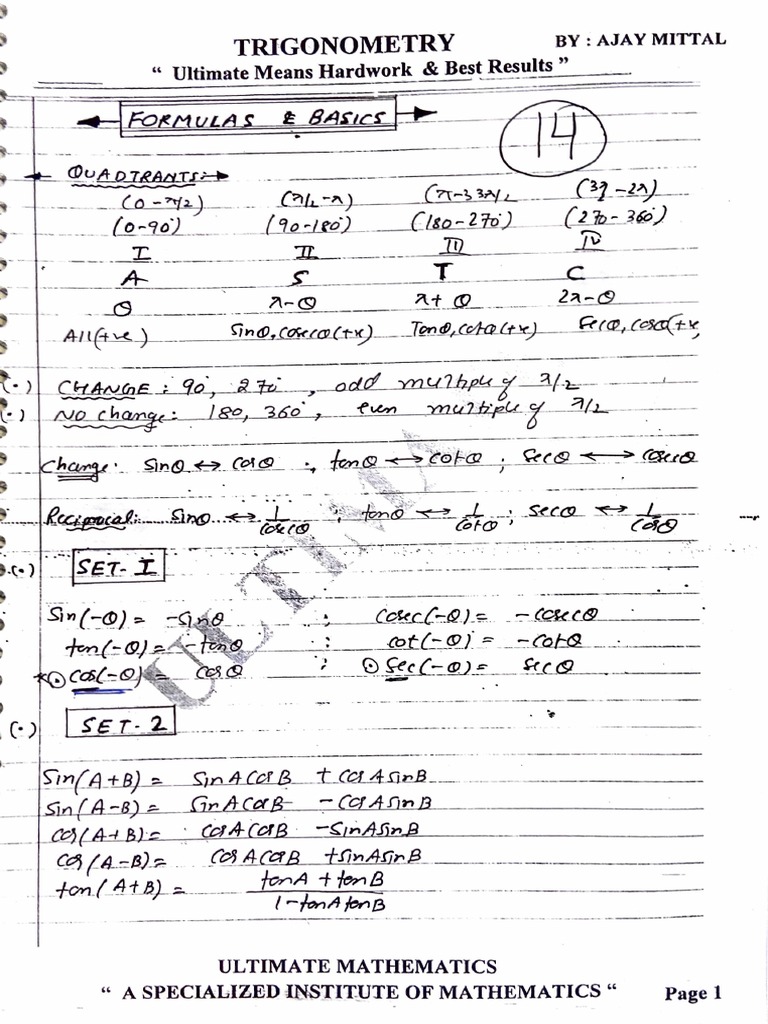 TRIGONOMETRY BY : AJAY MITTAL
“ Ultimate Means Hardwork & Best Results ”
FORMULAS & BASICS
14
QUADTRANTS:→
(0 - π/2) (π/2 - π) (π - 3π/2 (3π - 2π)
(0-90°) (90-180°) (180-270°) (270-360°)
I II III IV
A S T C
θ π-θ π+θ 2π-θ
All(+ve) Sinθ, cosecθ(+ve) Tanθ, cotθ(+ve) Secθ, cosθ(+ve,
(•) CHANGE : 90°, 270°, odd multiple of π/2
(•) NO change: 180, 360°, even multiple of π/2
Change: sinθ ↔ cosθ ; tanθ ↔ cotθ ; secθ ↔ cosecθ
Reciprocal: sinθ ↔ 1/cosecθ ; tanθ ↔ 1/cotθ ; secθ ↔ 1/cosθ
(•) SET-I
Sin(-θ) = -sinθ ; cosec(-θ) = -cosecθ
tan(-θ) = -tanθ ; cot(-θ) = -cotθ
cos(-θ) = cosθ ; sec(-θ) = secθ
(•) SET-2
Sin(A+B) = SinA cosB + cosA sinB
Sin(A-B) = SinA cosB - cosA sinB
cos(A+B) = cosA cosB - SinA sinB
cos(A-B) = cosA cosB + sinA sinB
tan(A+B) = tanA + tanB
1 - tanA tanB
ULTIMA
ULTIMATE MATHEMATICS
“ A SPECIALIZED INSTITUTE OF MATHEMATICS “ Page 1